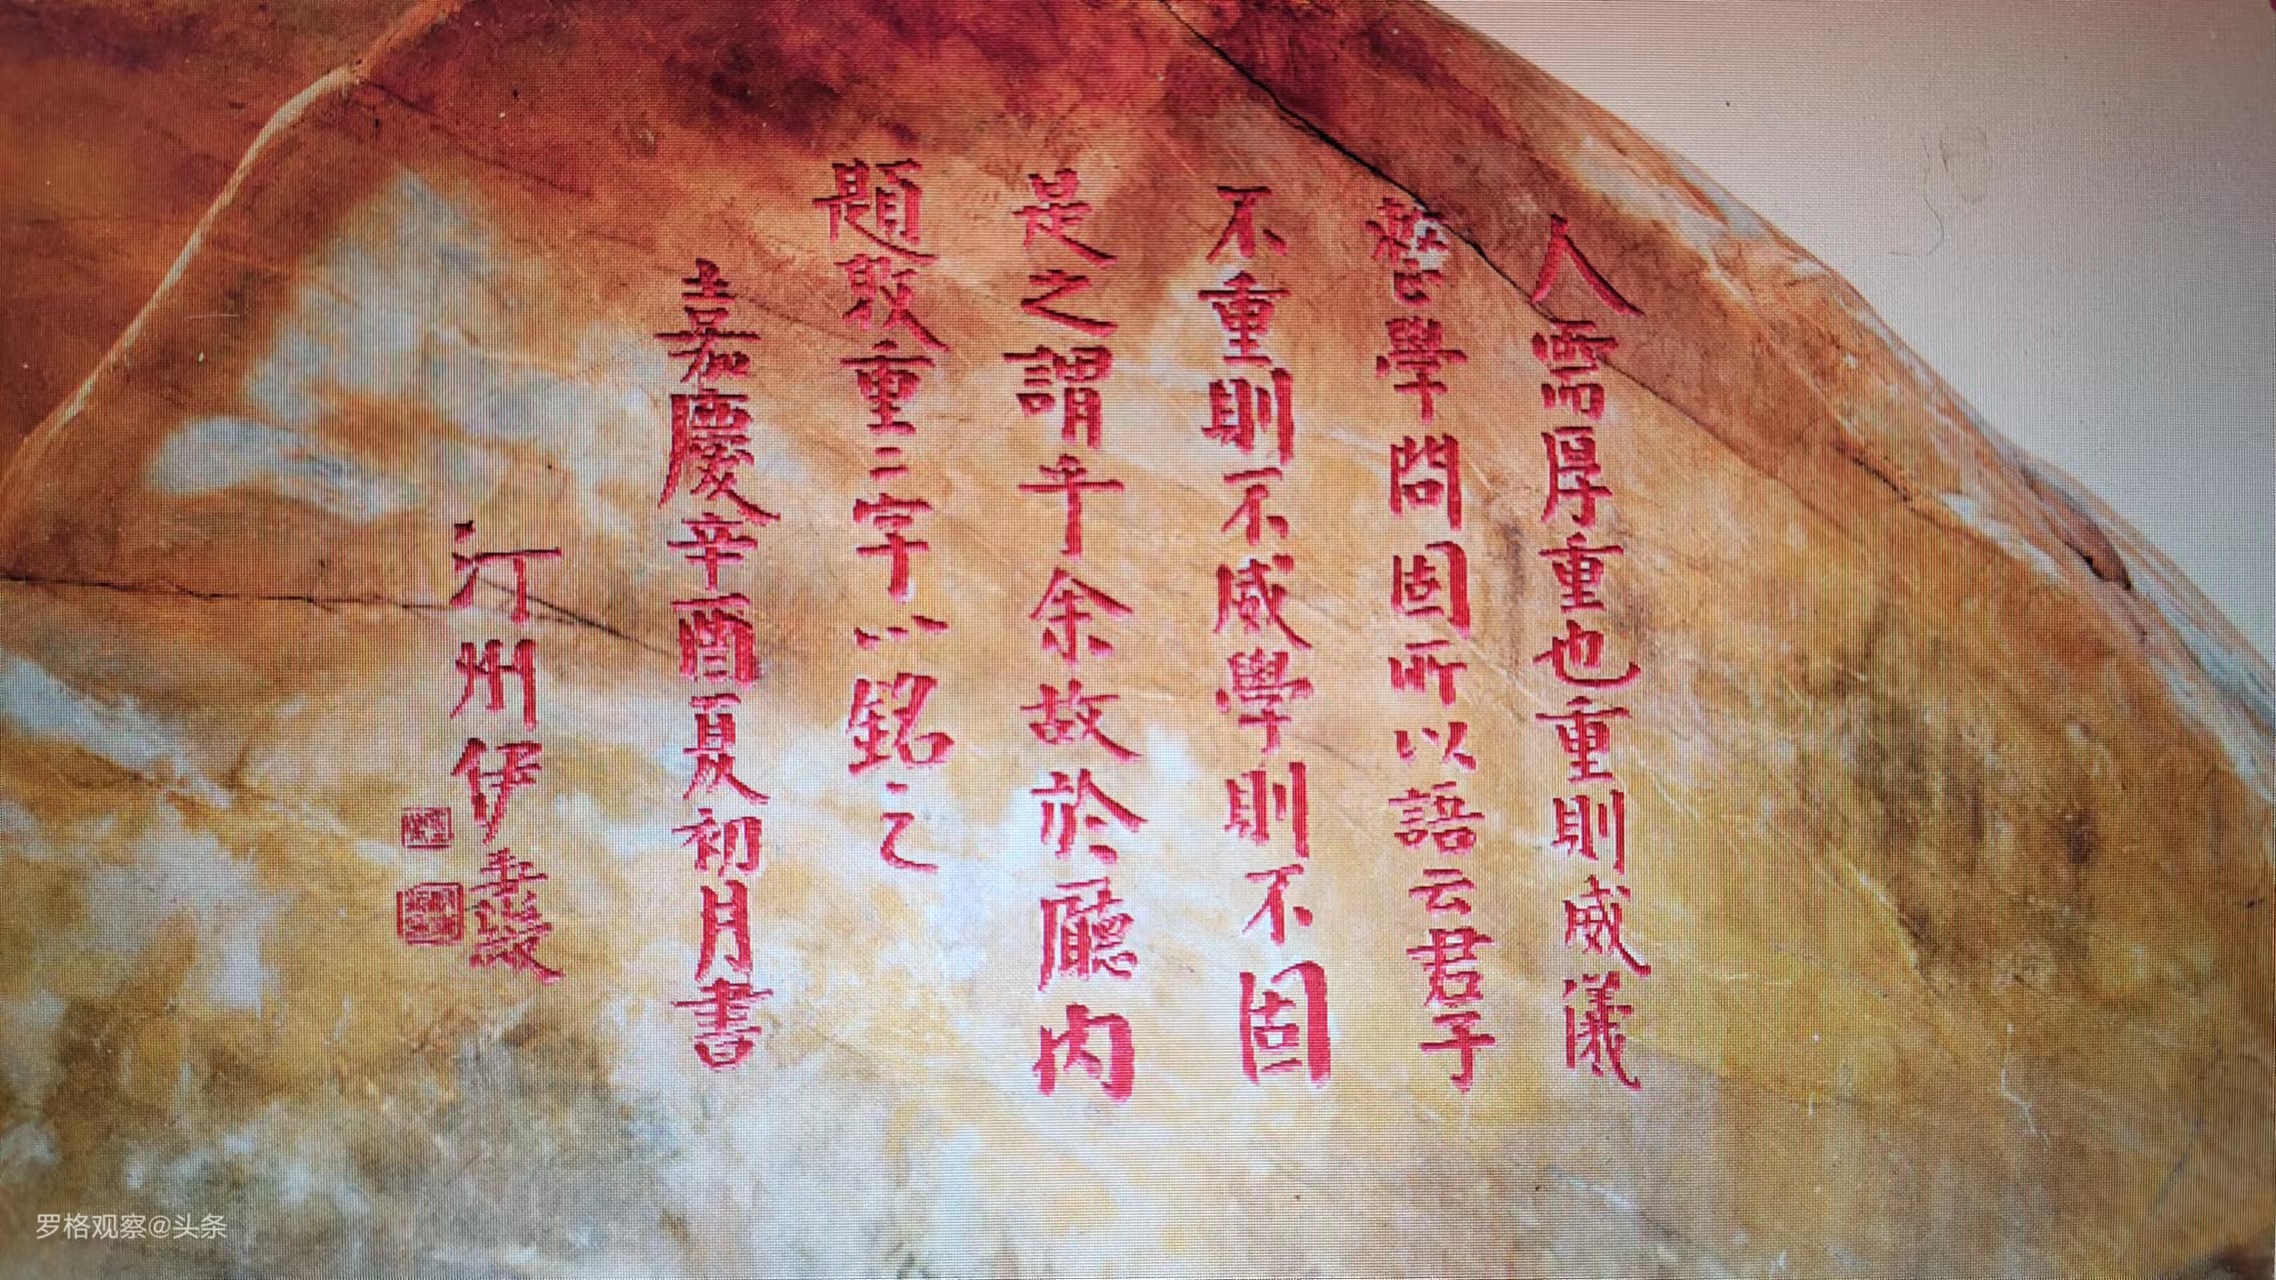 人需厚重也重則威儀
整學問固所以語云君子
不重則不威學則不固
是之謂乎余故於廳內
題敦重二字以銘之
嘉慶辛酉夏初月書
汀州伊秉綬
罗格观察@头条